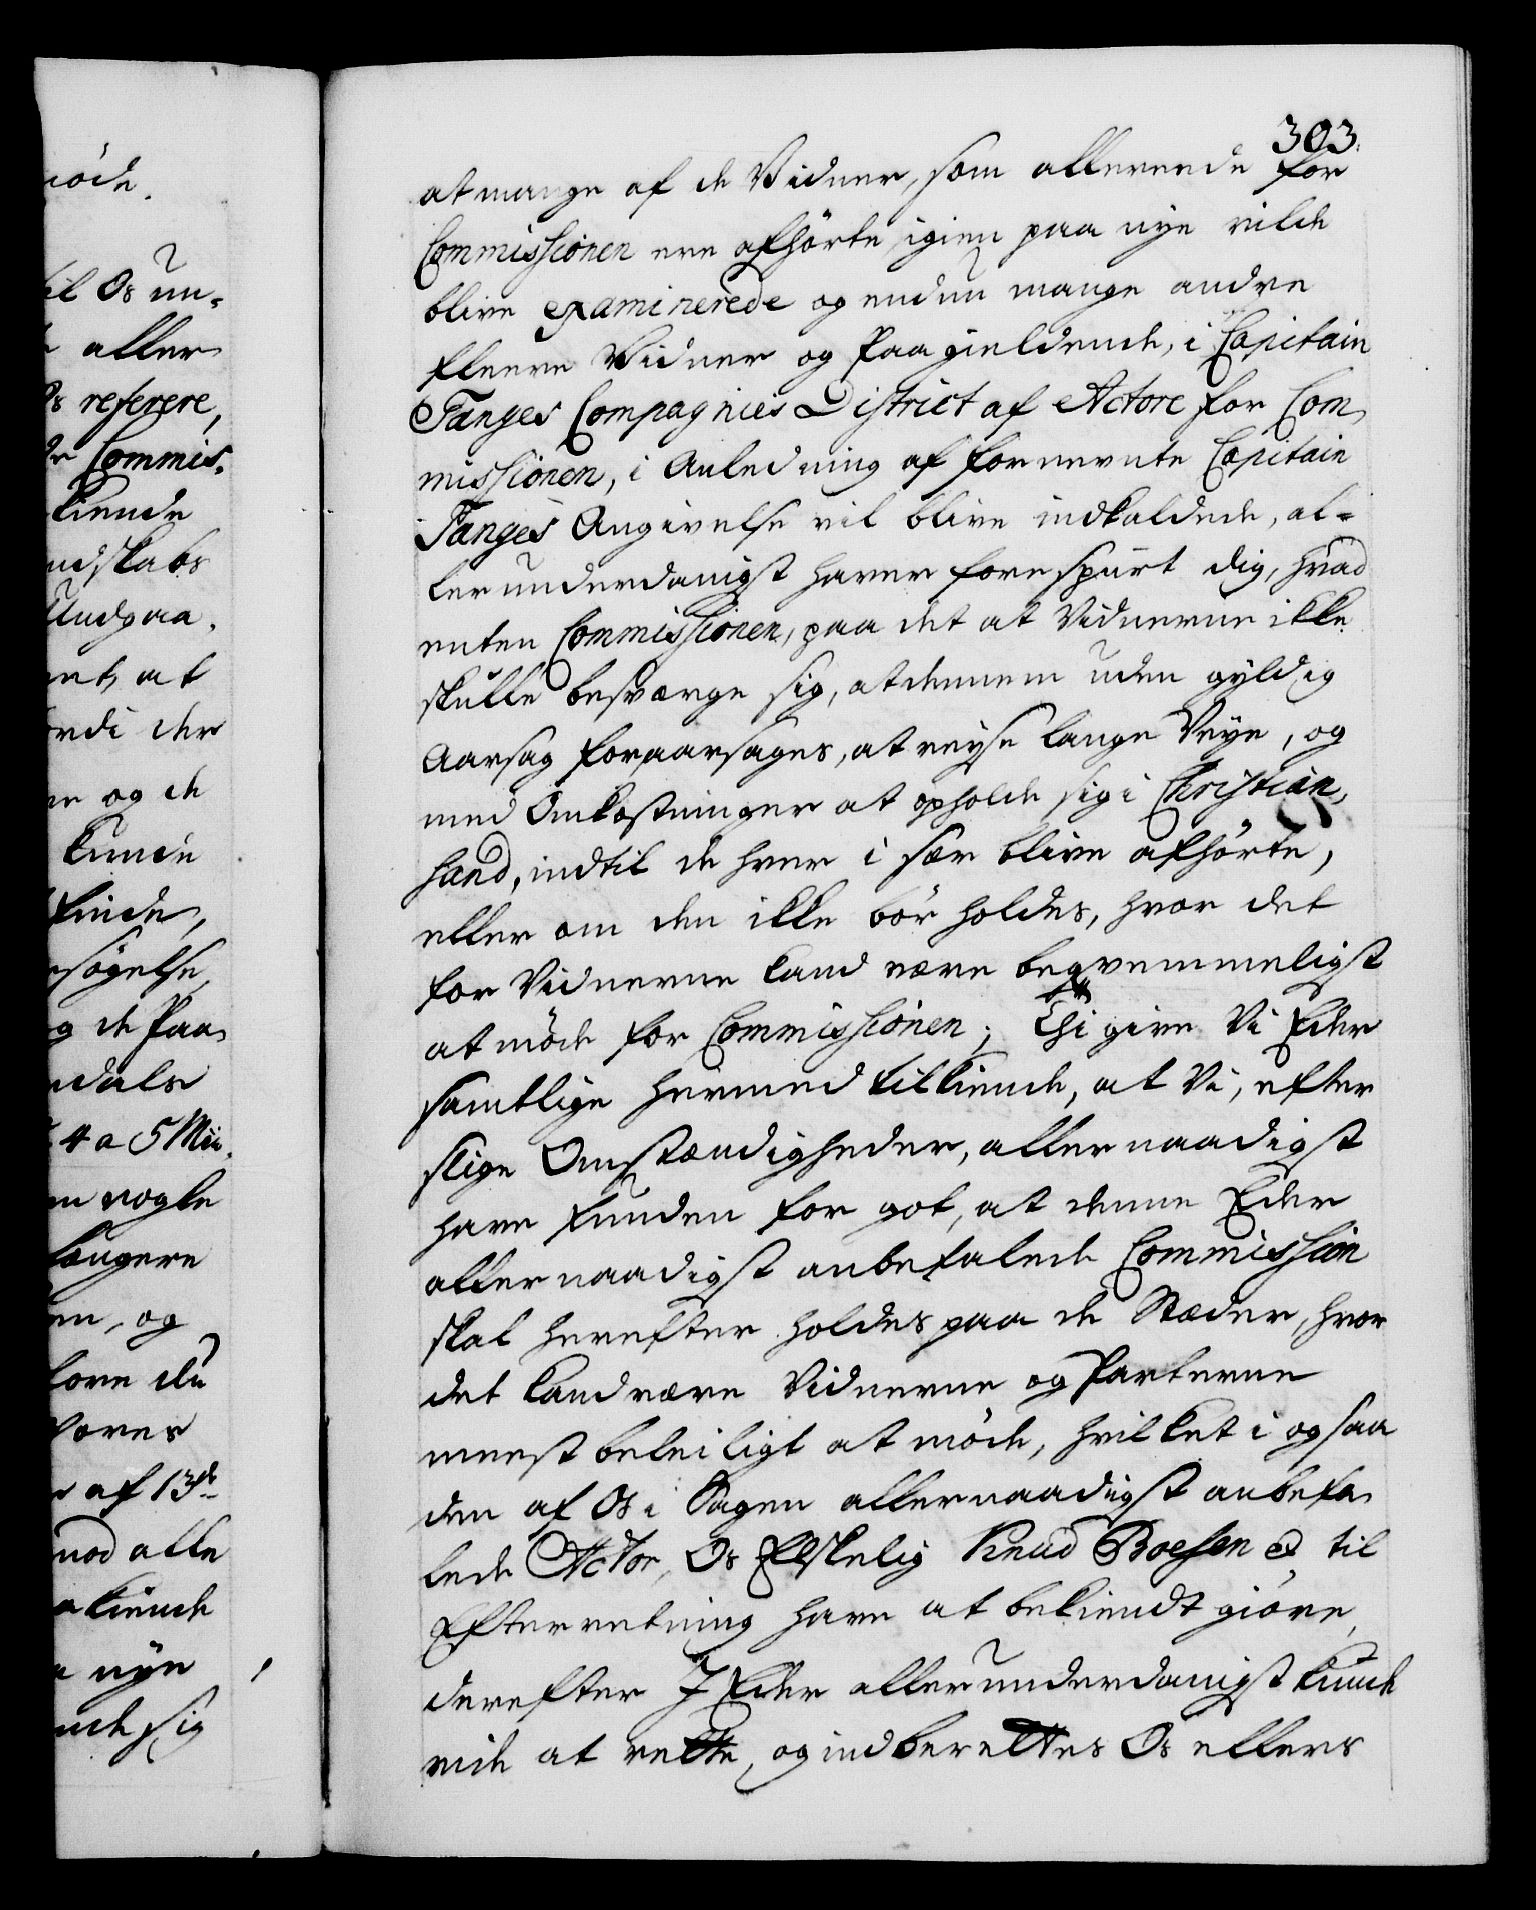 303.
at mange af de Vidner, som allereede for
Commissionen ere afhörte, igien paa nye vilde
blive examinerede og endnu mange andre
fleere Vidner og Paagieldende, i Capitain
Fanges Compagnies District af Actore for Com-
missionen, i Anledning af forenevnte Capitain
Fanges Angivelse vil blive indkaldede, al-
lerunderdanigst haver forespurt dig, hvad
enten Commissionen, paa det at Vidnerne ikke
skulle besværge sig, at dennem uden gyldig
Aarsag foraarsages, at reyse lange Veye, og
med Omkostninger at opholde sig i Christian-
sand, indtil de hver i sær blive afhörte,
eller om den ikke bör holdes, hvor det
for Vidnerne kand være begvemmeligst
at möde for Commissionen; Thi give Vi Eder
samtlige hermed tilkiende, at Vi, efter
slige Omstændigheder, allernaadigst
have funden for got, at denne Eder
allernaadigst anbefalede Commission
skal herefter holdes paa de Stæder, hvor
det kand være Vidnerne og Parterne
meest beleiligt at möde, hvilket i ogsaa
den af Os i Sagen allernaadigst anbefa-
lede Actor, Os Elskelig Knud Boesen til
Efterretning have at bekiendtgiöre,
derefter I Eder allerunderdanigst kunde
vide at rette, og indberettes Os ellers
iöde.
til Os un-
aller
Os referere,
Commis-
kiende
ndskabs
Undgaa-
at
ordi der
og de
kunde
finde,
sögelse,
og de Paa-
ndals
4 a 5 Mii-
nogle
længere
og
fore du
Vores
af 13de
mod alle
kiende
nye
nde sig